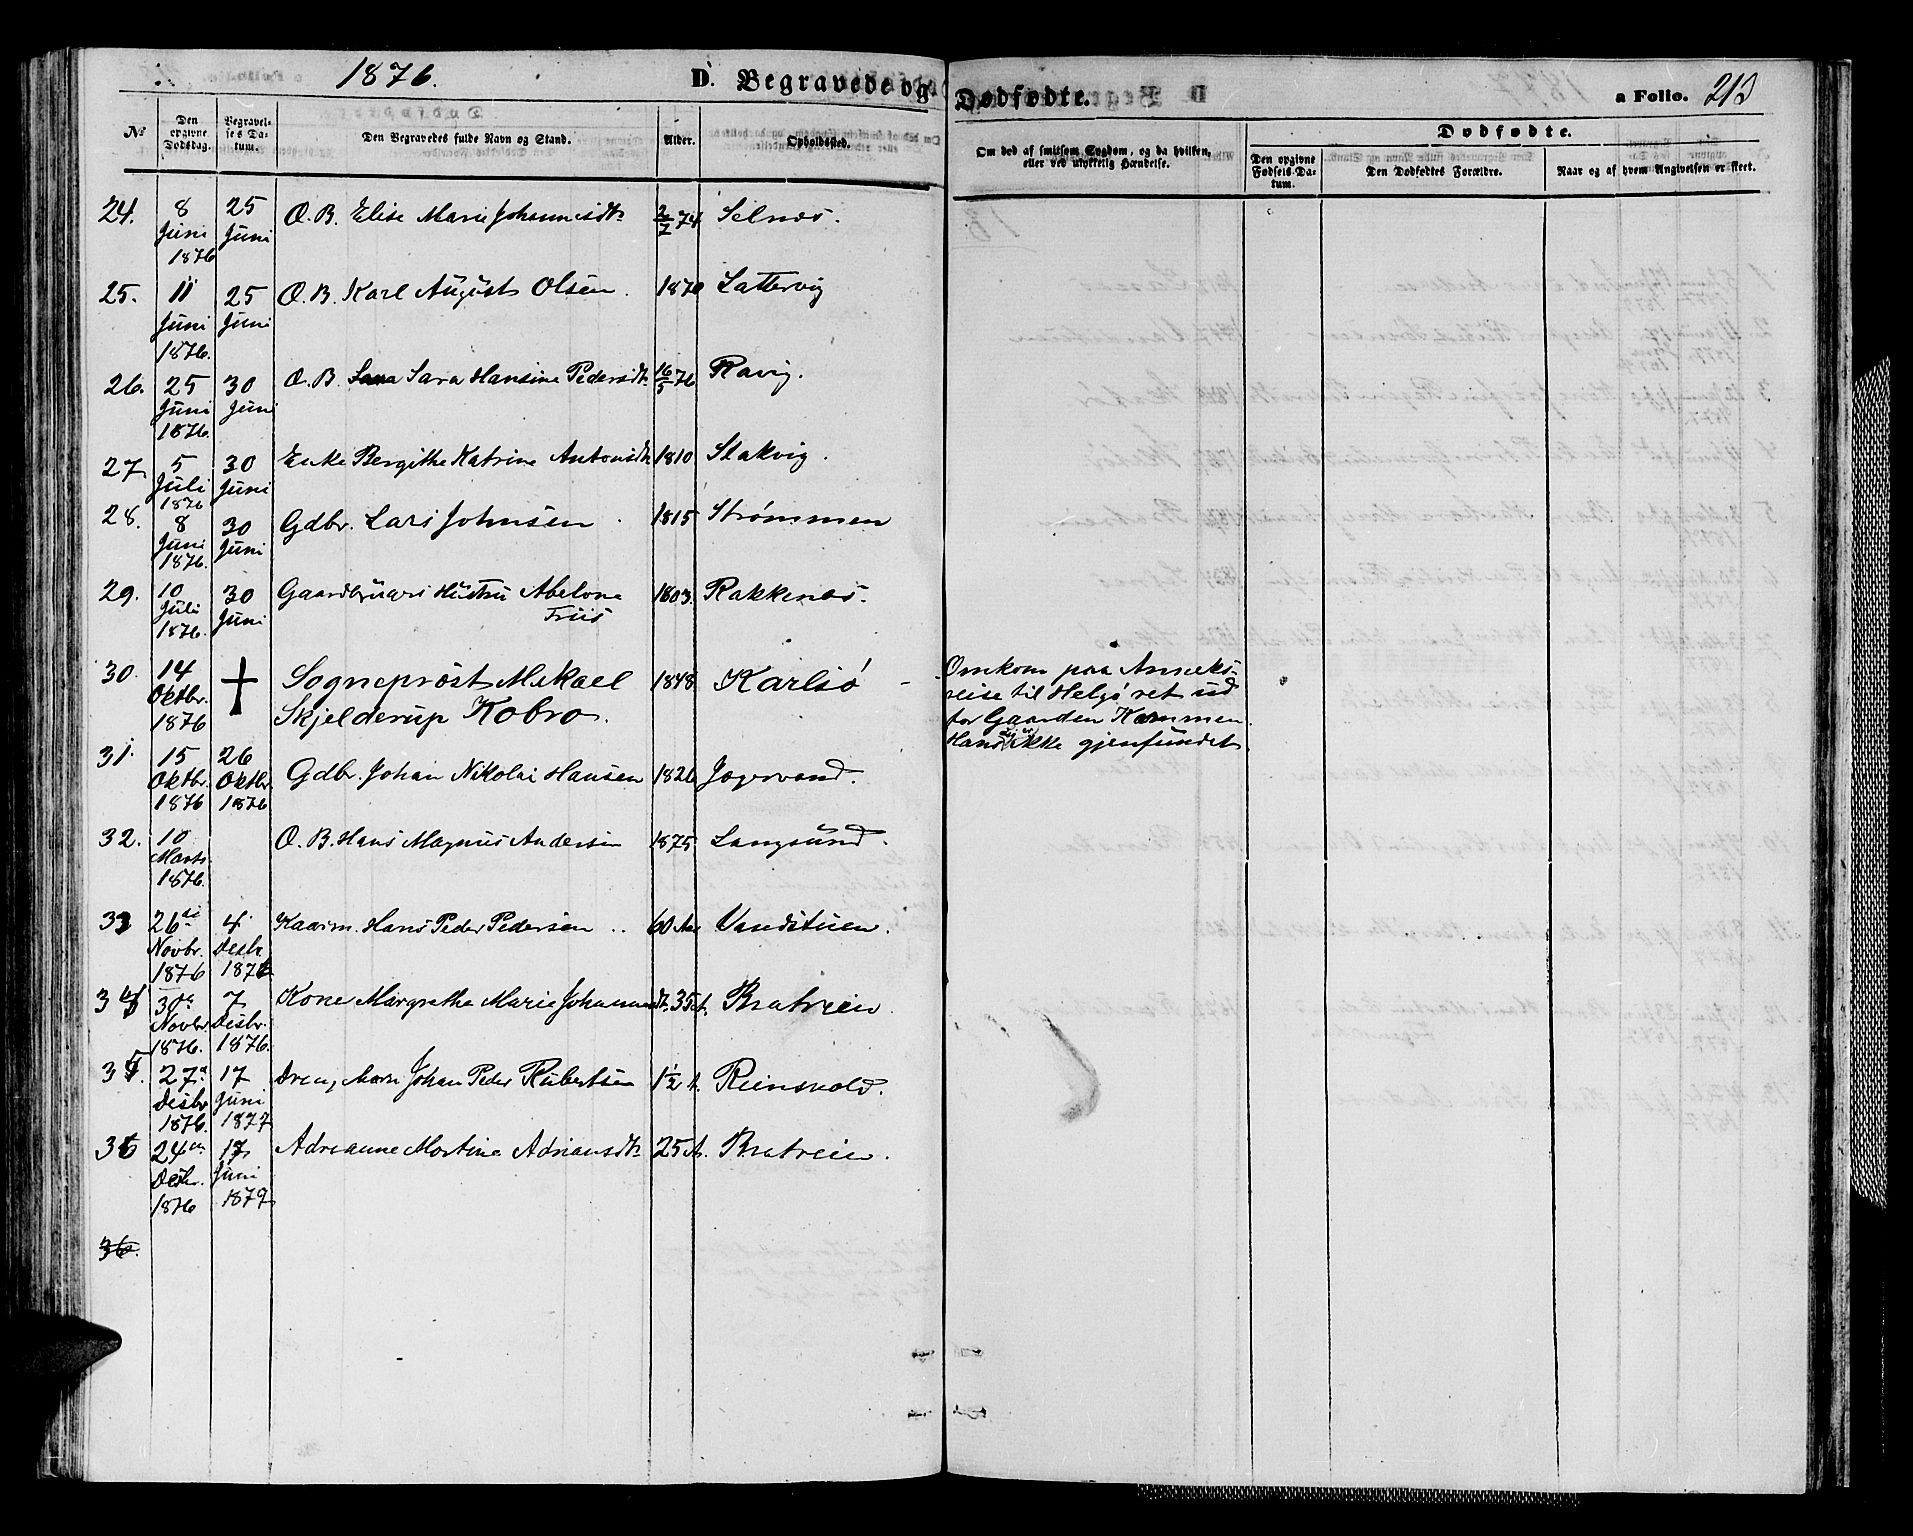 1876.
D. Begravede og Dødfødte.
a Folio. 213
№
Den opgivne Dødsdag.
Begravelses Datum.
Den Begravedes fulde Navn og Stand.
Alder.
Opholdssted.
Om død af smitsom Sygdom, og da hvilken, eller ved ulykkelig Hændelse.
Dødfødte.
Den opgivne Fødsels Datum.
Den Dødfødtes Forældre.
Naar og af hvem Angivelsen er skeet.
24. 8 Juni 1876 25 Juni O. B. Elise Marie Johannesdtr 2/7 74 Selnes.
25. 11 Juni 1876. 25 Juni O. B. Karl August Olsen. 1870 Lattervig
26. 25 Juni 1876. 30 Juni O. B. Sara Hansine Pedersdtr 16/5 76 Ravig.
27 5 Juli 1876 30 Juni Enke Bergithe Katrine Antonsdtr 1810 Stakvig.
28. 8 Juni 1876. 30 Juni Gdbr. Lars Johnsen. 1815 Strømmen
29. 10 Juli 1876. 30 Juni Gaardbrugers Hustru Abelone Friis 1803. Rakkenes.
30. 14 Oktbr. 1876 † Sogneprøst Mikael Skjelderup Kobro. 1848 Karlsø
Omkom paa Anneks-
reise til Helgø ret ud
for Gaarden Kammen.
Hans Lig er ikke gjenfundet
31. 15 Oktbr. 1876 26 Oktbr. 1876 Gdbr. Johan Nikolai Hansen 1826 Jægervand.
32. 10 Marts 1876. O. B. Hans Magnus Andersen 1875 Langsund.
33 26de Novbr. 1876 4 Desbr. 1876 Kaarm. Hans Peder Pedersen 60 Aar
34 30e Novbr. 1876. 7 Desbr. 1876. Kone Margrethe Marie Johannesdt. 35 A. Bratrein.
35. 27d Desbr 1876. 17 Juni 1877 Dreng Johan Peder Robertsen 1½ A. Reinskold.
36 24de Desbr. 1876 17 Juni 1879 Adrianne Martine Adriansdtr 25 A. Bratrein.
36.